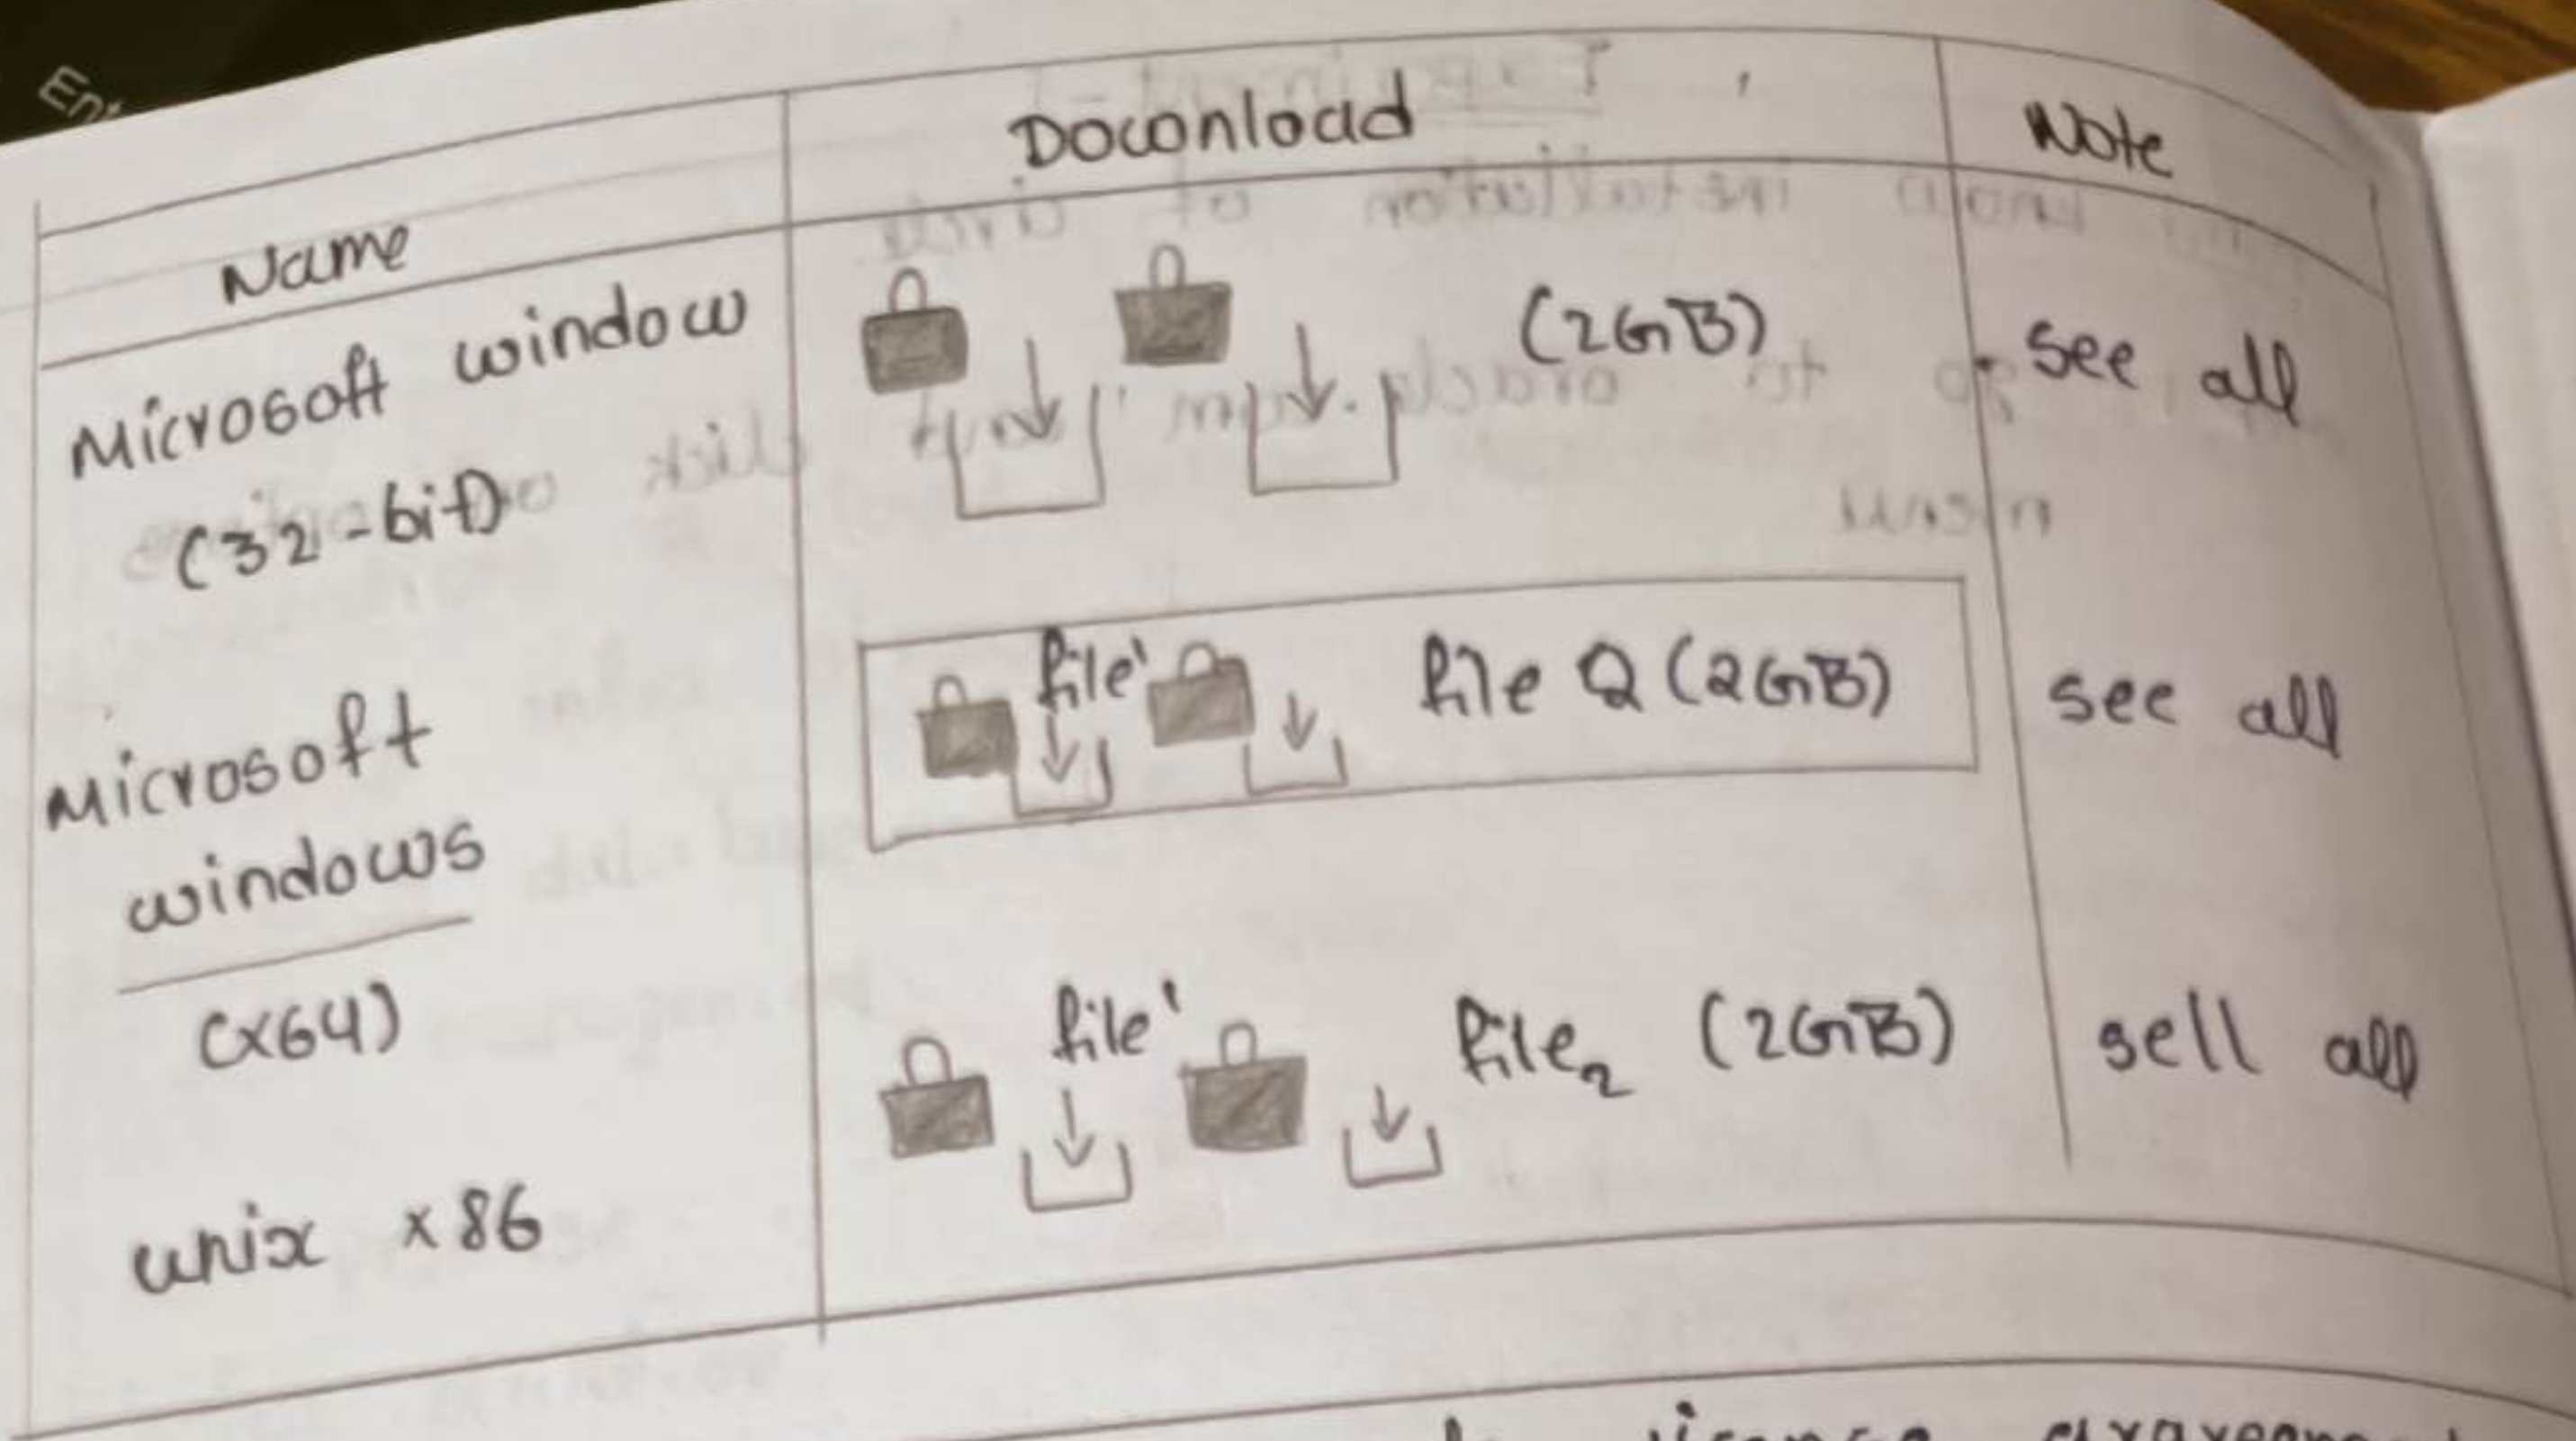 Name
Doconload
Note
Microsoft window
(32-bit)
(2GB)
see all
Microsoft
windows
(x64)
file1
file 2 (2GB)
see all
unix x86
file1
file2 (2GB)
sell all